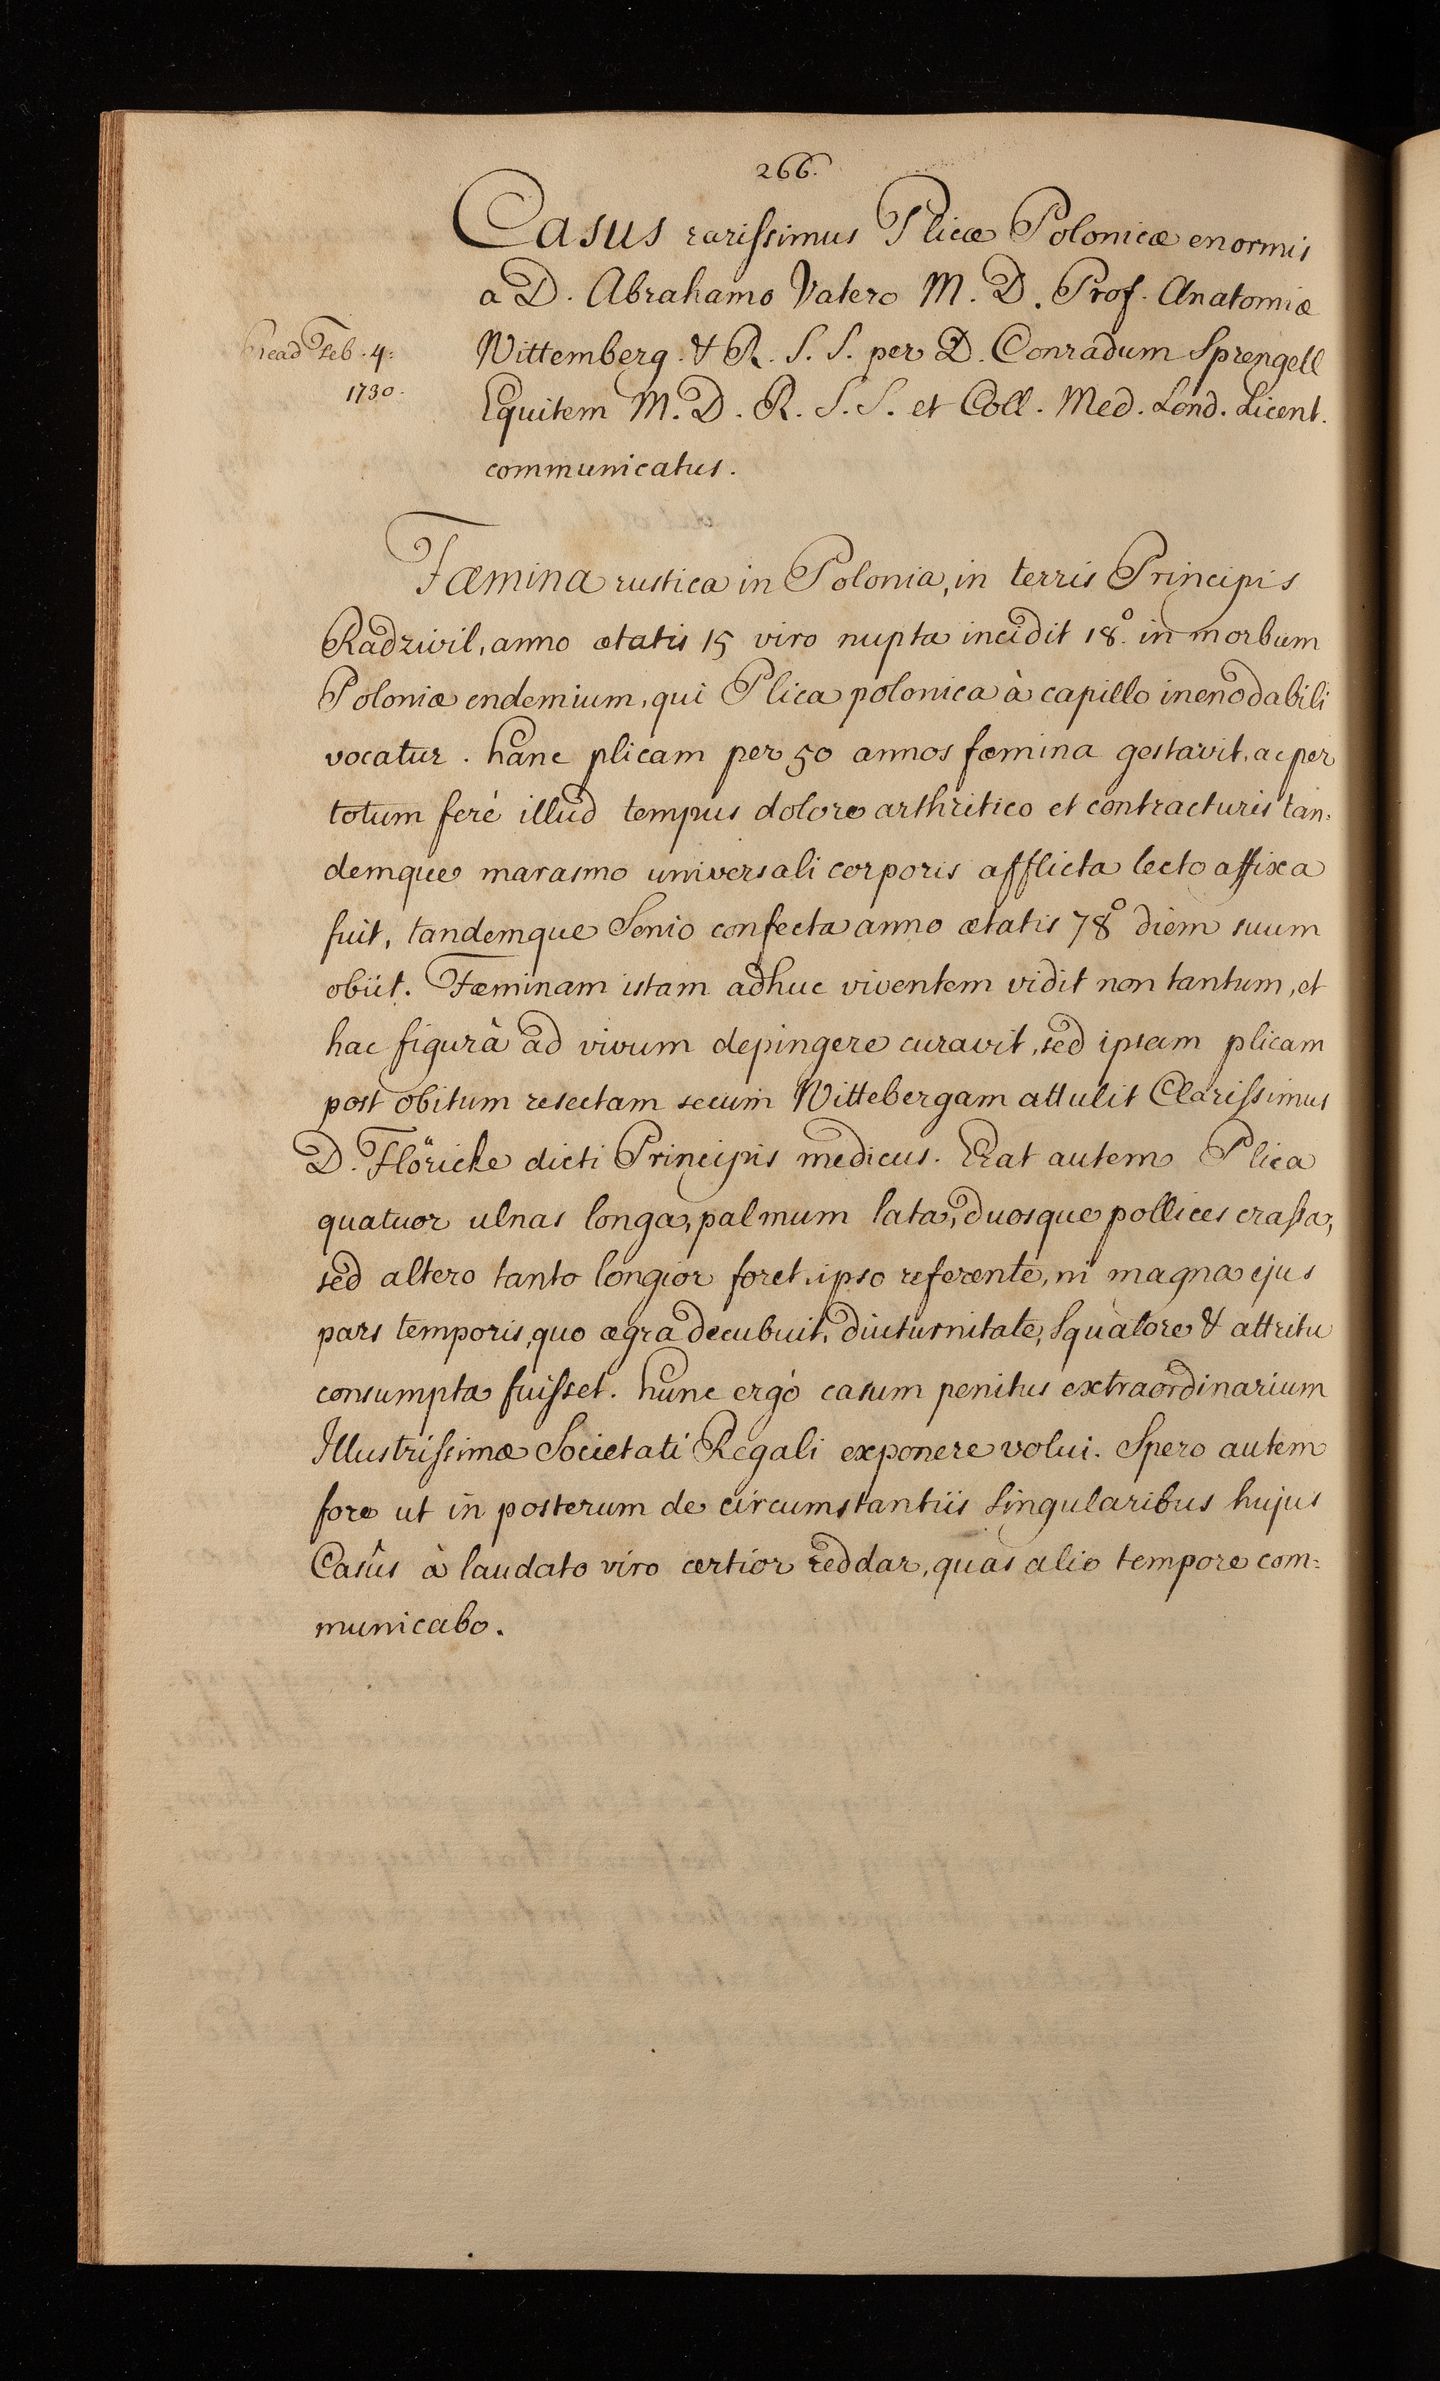 266.
Casus rarissimus Plicæ Polonicæ enormis
a D. Abrahamo Vatero M. D. Prof. Anatomiæ
Wittemberg. & R. S. S. per D. Conradum Sprengell
Read Feb. 4.
1730.
Equitem M. D. R. S. S. et Coll. Med. Lond. Licent.
communicatus.
Fæmina rustica in Polonia, in terris Principis
Radzivil, anno ætatis 15 viro nupta incidit 18.º in morbum
Poloniæ endemium, qui Plica polonica à capillo inenodabili
vocatur. hanc plicam per 50 annos fæmina gestavit, ac per
totum feré illud tempus dolore arthritico et contracturis tan=
demque marasmo universali corporis afflicta lecto affixa
fuit, tandemque Senio confecta anno ætatis 78º diem suum
obiit. Fæminam istam adhuc viventem vidit non tantum, et
hac figurà ad vivum depingere curavit, sed ipsam plicam
post obitum resectam secum Wittebergam attulit Clarissimus
D. Flöricke dicti Principis medicus. Erat autem Plica
quatuor ulnas longa, palmum lata, duosque pollices crassa,
sed altero tanto longior foret, ipso referente, ni magna ejus
pars temporis, quo ægra decubuit, diuturnitate, Squalore & attritu
consumpta fuisset. hunc ergò casum penitus extraordinarium
Illustrissimæ Societati Regali exponere volui. Spero autem
fore ut in posterum de circumstantiis Singularibus hujus
Casûs à laudato viro certior reddar, quas alio tempore com=
municabo.